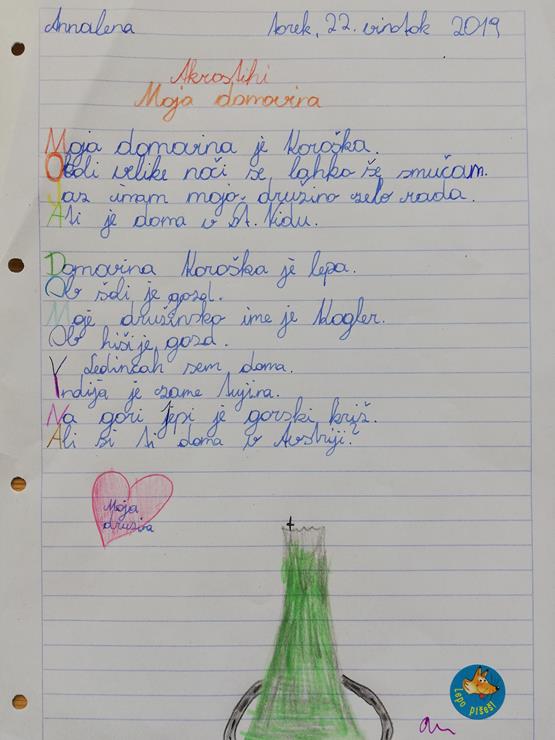 Annalena torek, 22. vinotok 2019
Akrostihi
Moja domovina
Moja domovina je Koroška.
Okoli velike noči se lahko še smučam.
Jaz imam mojo družino zelo rada.
Ati je doma v Št. Vidu.
Domovina Koroška je lepa.
Ob šoli je gozd.
Moje družinsko ime je Kogler.
Ob hiši je gozd.
V Ledincah sem doma.
Indija je zame tujina.
Na gori Jepi je gorski križ.
Ali si ti doma v Avstriji?
Moja
družina
Lepo pišeš!